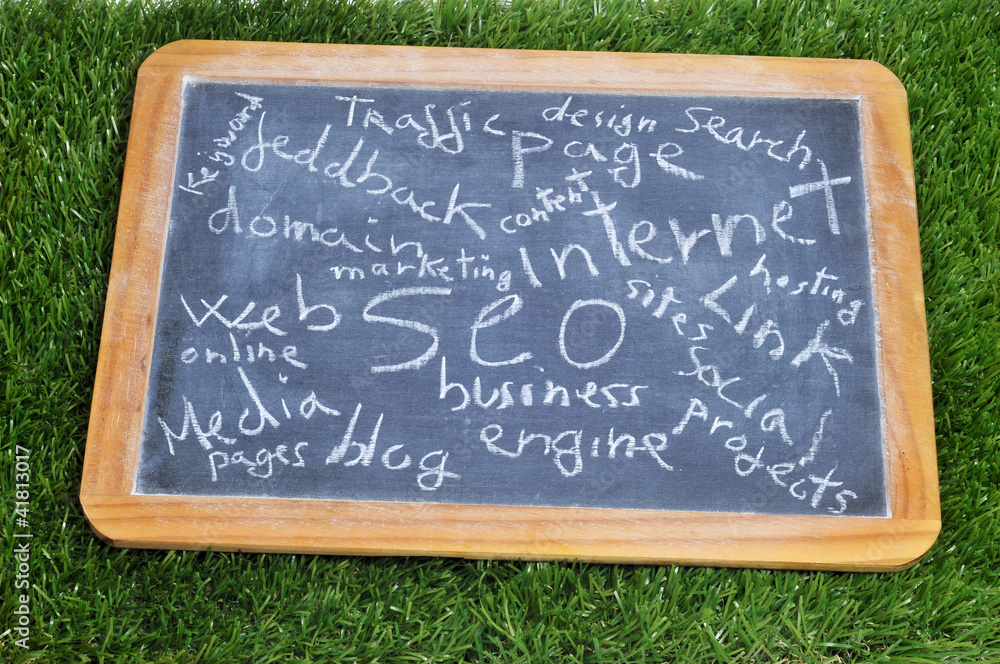 Keyword
Traffic
design
Search
feddback
Page
content
domain
Internet
marketing
hosting
sites
Link
web
Seo
online
social
business
Media
Projects
pages
blog
engine
Adobe Stock | #41813017